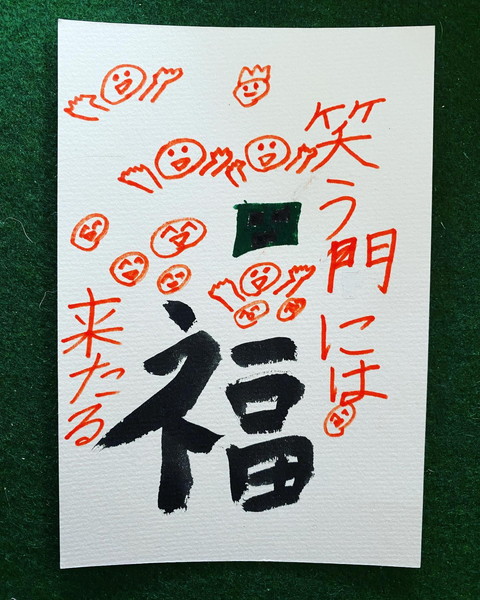 笑う門には
福
来たる